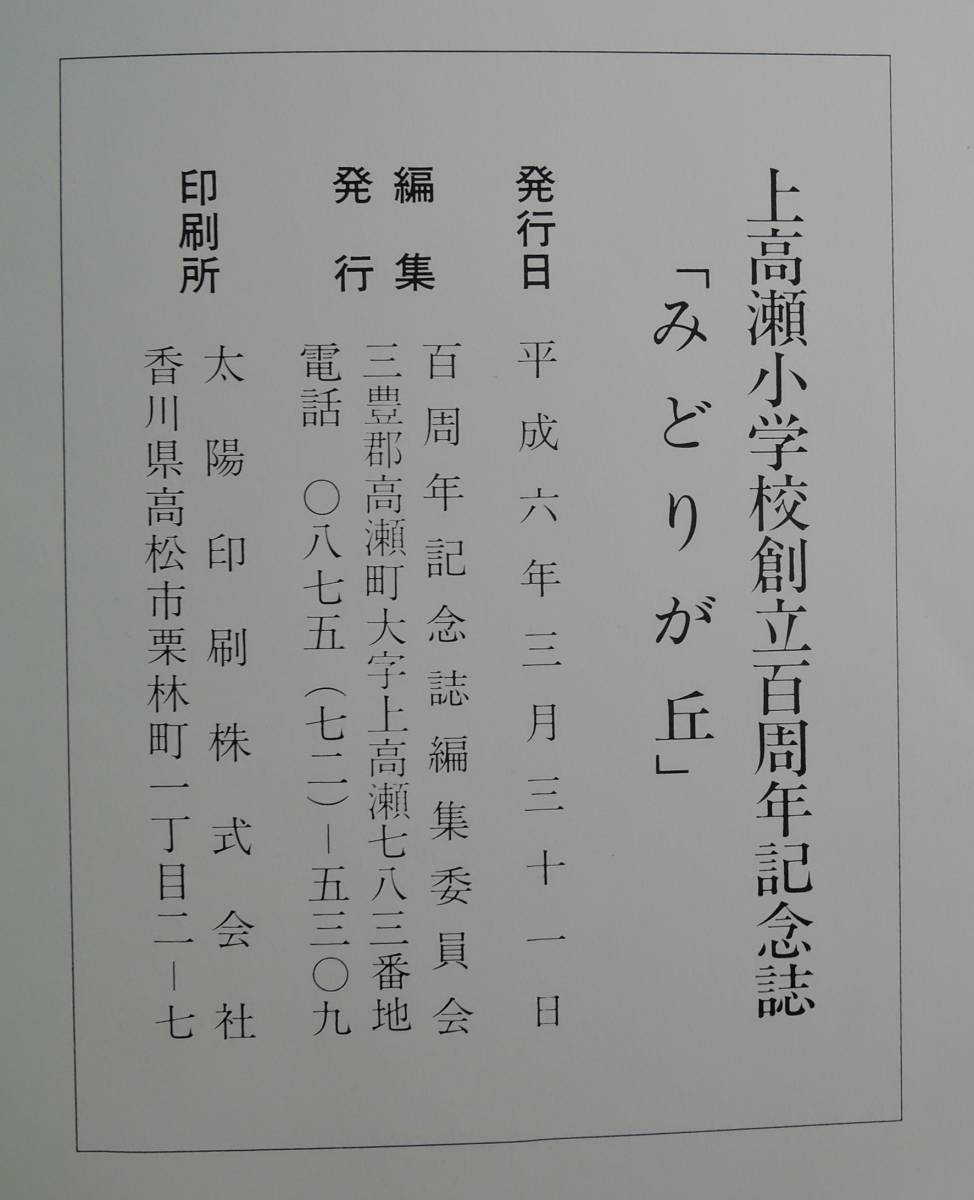 上高瀬小学校創立百周年記念誌
「みどりが丘」
発行日 平成六年三月三十一日
編集 百周年記念誌編集委員会
発行 三豊郡高瀬町大字上高瀬七八三番地
電話 〇八七五(七二)-五三〇九
印刷所 太陽印刷株式会社
香川県高松市栗林町一丁目二-七